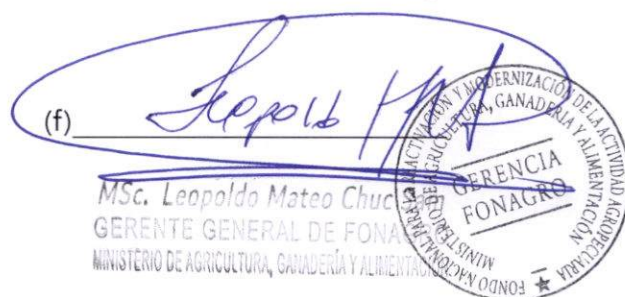 (f) Leopoldo
MSc. Leopoldo Mateo
GERENTE GENERAL DE FONAGRO
MINISTERIO DE AGRICULTURA, GANADERÍA Y ALIMENTACIÓN
FONDO NACIONAL PARA LA REACTIVACIÓN Y MODERNIZACIÓN DE LA ACTIVIDAD AGROPECUARIA
MINISTERIO DE AGRICULTURA, GANADERÍA Y ALIMENTACIÓN
GERENCIA
FONAGRO